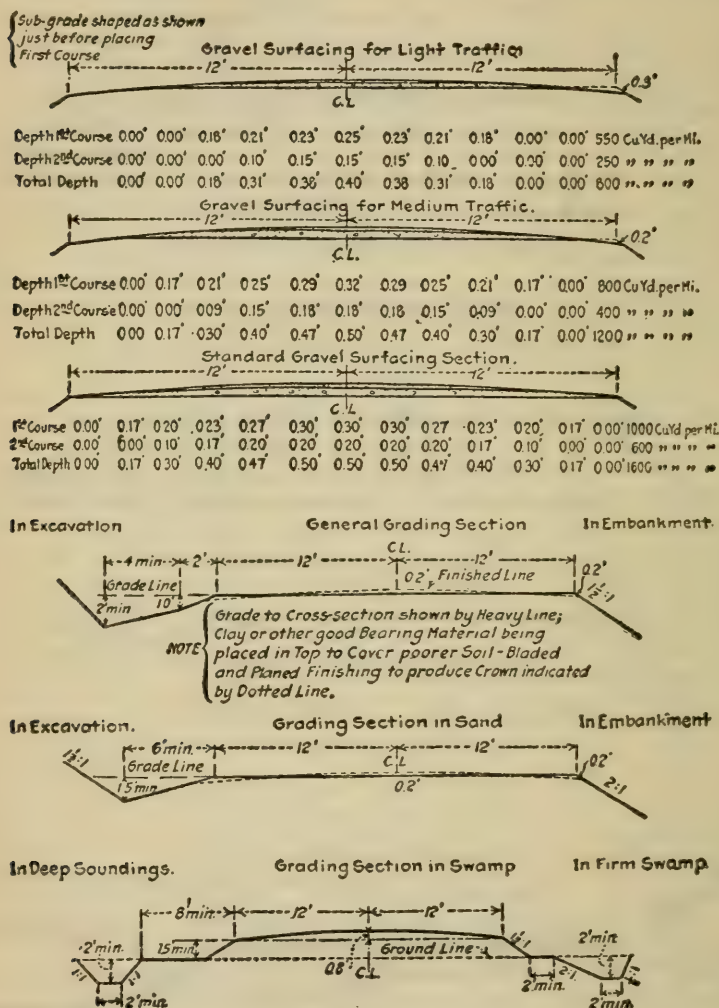 Sub-grade shaped as shown
just before placing
First Course
Gravel Surfacing for Light Traffic
12' 12'
0.3'
C.L.
Depth 1st Course 0.00' 0.00' 0.18' 0.21' 0.23' 0.25' 0.23' 0.21' 0.18' 0.00' 0.00' 550 Cu Yd. per Mi.
Depth 2nd Course 0.00' 0.00' 0.00' 0.10' 0.15' 0.15' 0.15' 0.10 0.00' 0.00' 0.00' 250 " " " "
Total Depth 0.00' 0.00' 0.18' 0.31' 0.38' 0.40' 0.38 0.31' 0.18' 0.00' 0.00' 800 " " " "
Gravel Surfacing for Medium Traffic.
12' 12'
0.2'
C.L.
Depth 1st Course 0.00' 0.17' 0.21' 0.25' 0.29' 0.32' 0.29 0.25' 0.21' 0.17' 0.00' 800 Cu Yd. per Mi.
Depth 2nd Course 0.00' 0.00' 0.09' 0.15' 0.18' 0.18' 0.18 0.15' 0.09' 0.00' 0.00' 400 " " " "
Total Depth 0.00 0.17' .030' 0.40' 0.47' 0.50' 0.47 0.40' 0.30' 0.17' 0.00' 1200 " " " "
Standard Gravel Surfacing Section.
12' 12'
C.L.
1st Course 0.00' 0.17' 0.20' 0.23' 0.27' 0.30' 0.30' 0.30' 0.27 0.23' 0.20' 0.17' 0.00' 1000 Cu Yd per Mi.
2nd Course 0.00' 0.00' 0.10' 0.17' 0.20' 0.20' 0.20' 0.20' 0.20' 0.17' 0.10' 0.00' 0.00' 600 " " " "
Total Depth 0.00' 0.17' 0.30' 0.40' 0.47' 0.50' 0.50' 0.50' 0.47 0.40' 0.30' 0.17' 0.00' 1600 " " " "
In Excavation General Grading Section In Embankment.
C.L.
4 min. 2' 12' 12'
Grade Line 0.2' Finished Line 0.2'
2' min 1.0' 1½:1
NOTE
Grade to Cross-section shown by Heavy Line;
Clay or other good Bearing Material being
placed in Top to Cover poorer Soil - Bladed
and Planed Finishing to produce Crown indicated
by Dotted Line.
In Excavation. Grading Section in Sand In Embankment
1½:1 6' min. 12' 12'
Grade Line C.L. 0.2'
1.5' min 0.2' 2:1
In Deep Soundings. Grading Section in Swamp In Firm Swamp
8' min. 12' 12'
2' min. 1.5 min Ground Line 1½:1 2' min.
1:1 0.8' C.L. 2:1
2' min. 2' min. 2' min.